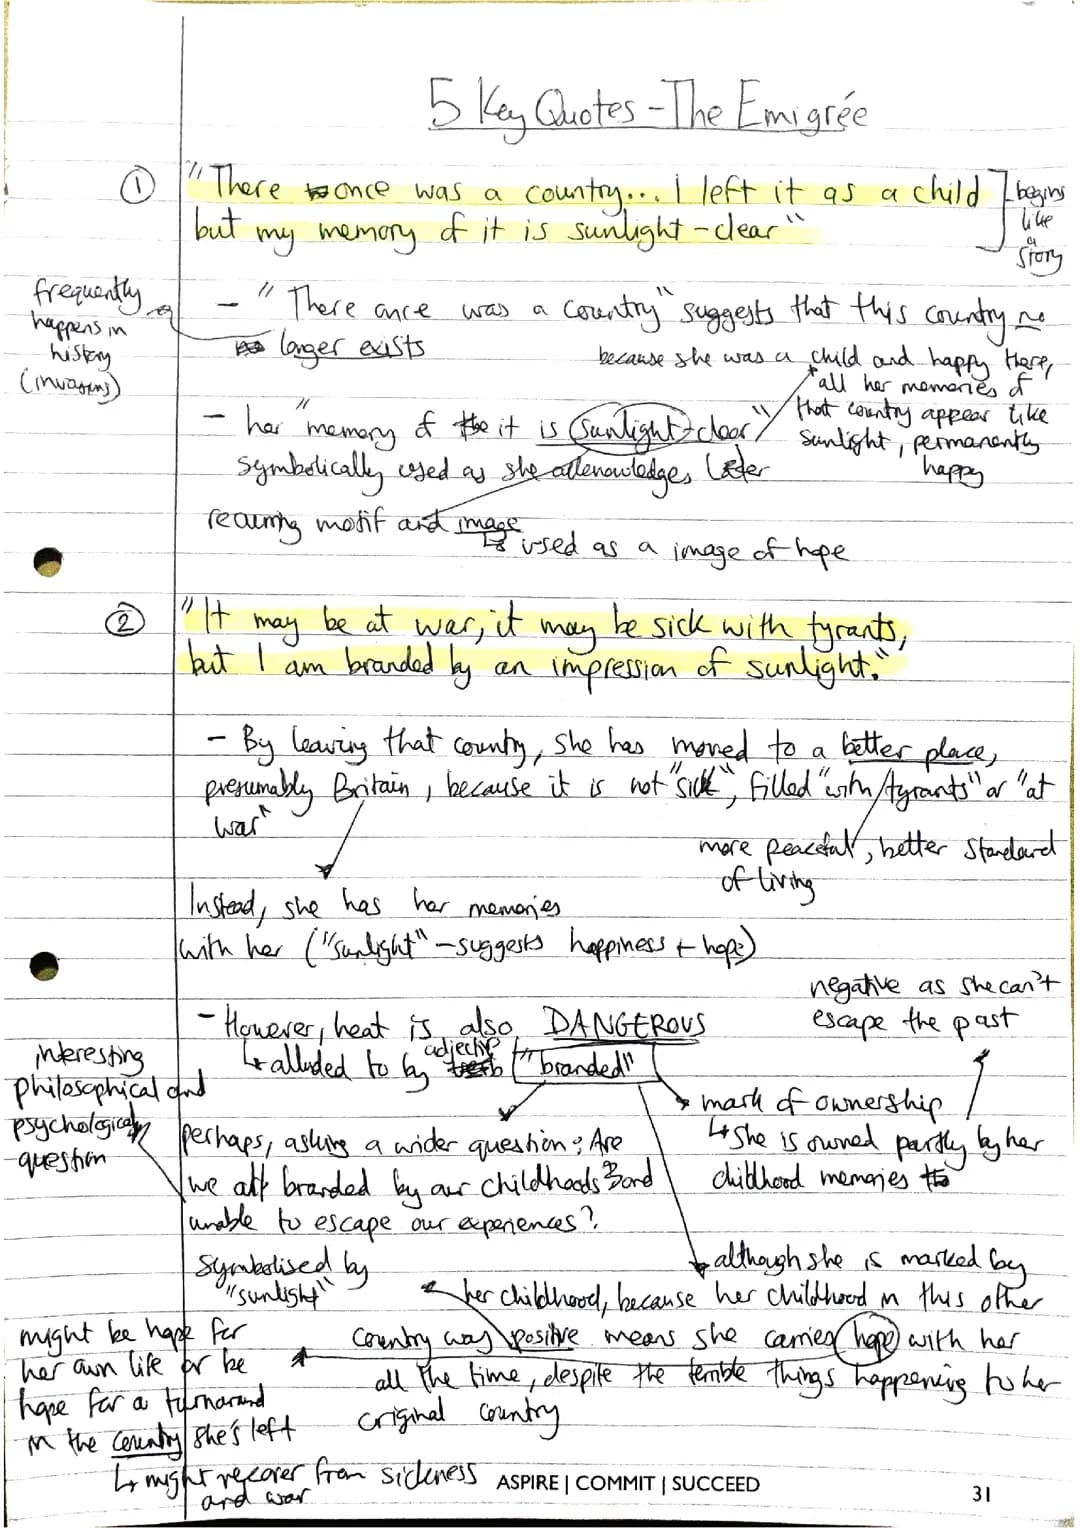 5 Key Quotes - The Emigrée
① "There once was a country... I left it as a child
but my memory of it is sunlight-clear"
begins
like
a
story
frequently
happens in
history
(invasions)
- "There once was a country" suggests that this country no
longer exists
because she was a child and happy there,
all her memories of
that country appear like
sunlight, permanently
happy
- her "memory of it is sunlight-clear"
symbolically used as she acknowledges later
recurring motif and image
↳ used as a image of hope
② "It may be at war, it may be sick with tyrants,
but I am branded by an impression of sunlight."
- By leaving that country, she has moved to a better place,
presumably Britain, because it is not "sick", filled "with tyrants" or "at
war"
more peaceful, better standard
of living
Instead, she has her memories
with her ("sunlight" - suggests happiness + hope)
negative as she can't
escape the past
- However, heat is also DANGEROUS
↳ alluded to by adjective "branded"
interesting
philosophical and
psychological
question
mark of ownership
↳ she is owned partly by her
childhood memories
perhaps, asking a wider question: Are
we all branded by our childhoods and
unable to escape our experiences?
symbolised by
"sunlight"
although she is marked by
her childhood, because her childhood in this other
country was positive means she carries hope with her
all the time, despite the terrible things happening to her
original country
might be hope for
her own life or be
hope for a turnaround
in the country she's left
↳ might recover from sickness
and war
ASPIRE | COMMIT | SUCCEED
31